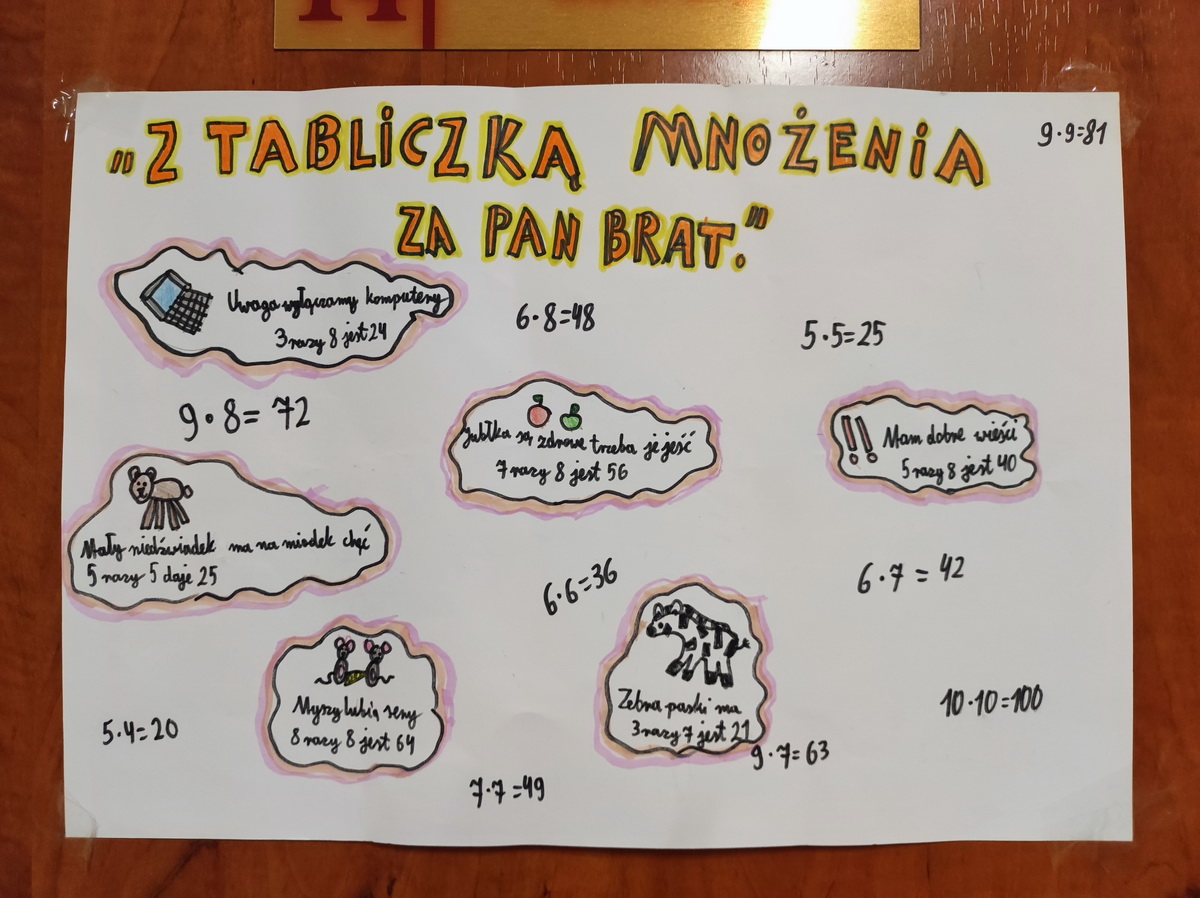 „Z TABLICZKĄ MNOŻENIA
ZA PAN BRAT."
9·9=81
Uwaga wyłączamy komputery
3 razy 8 jest 24
6·8=48
5·5=25
9·8=72
Jabłka są zdrowe trzeba je jeść
7 razy 8 jest 56
!! Mam dobre wieści
5 razy 8 jest 40
Mały niedźwiadek ma na miodek chęć
5 razy 5 daje 25
6·6=36
6·7=42
Myszy lubią sery
8 razy 8 jest 64
Zebra paski ma
3 razy 7 jest 21
10·10=100
5·4=20
9·7=63
7·7=49